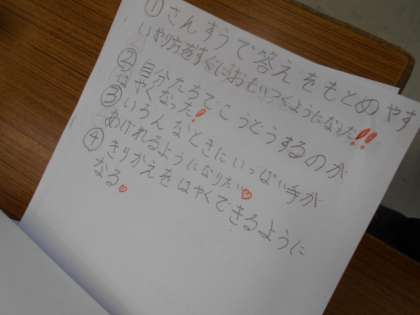 ① さんすうで答えをもとめやす
いやり方をすぐにおもいつくようになった!!
② 自分たちでこうどうするのが
はやくなった!
③ いろんなときにいっぱい手が
あげれるようになりたい♡
④ きりかえをはやくできるように
なる♡